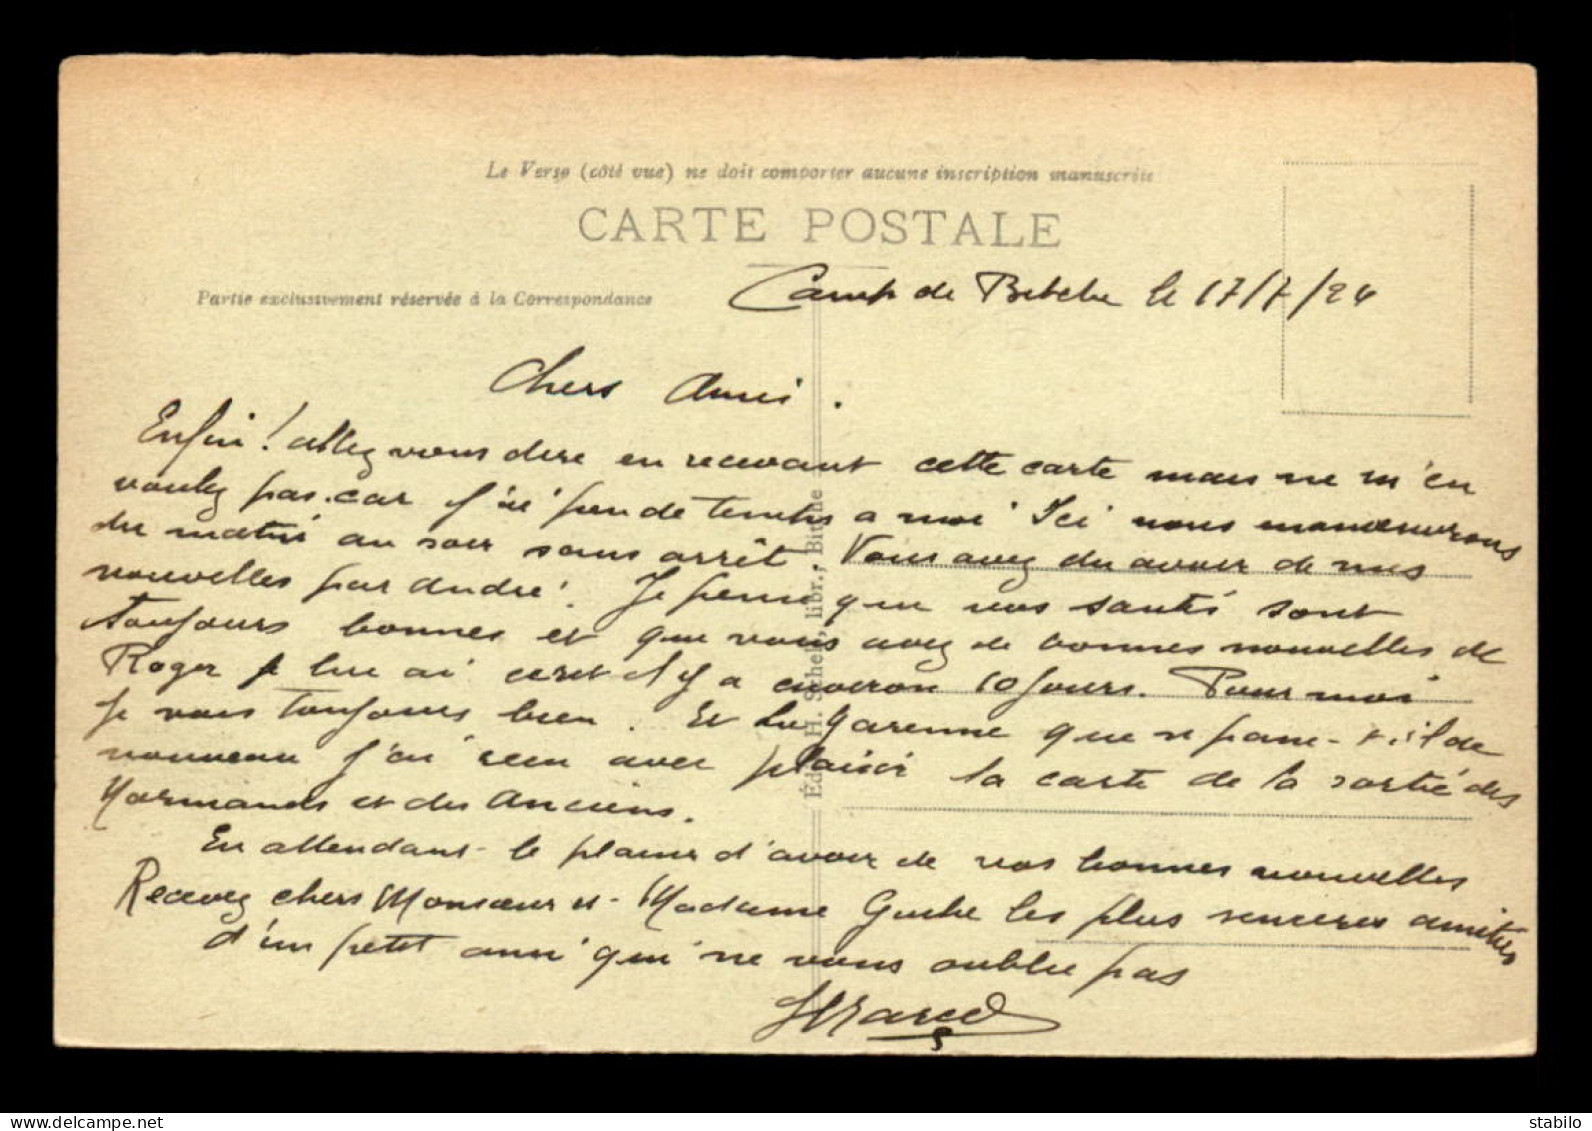 Le Verso (côté vue) ne doit comporter aucune inscription manuscrite
CARTE POSTALE
Partie exclusivement réservée à la Correspondance
Camp de Bitche le 17/7/24
Chers Amis.
Enfin! allez vous dire en recevant cette carte mais ne m'en
voulez pas. car j'ai peu de temps a moi Ici nous manœuvrons
du matin au soir sans arrêt. Vous avez du avoir de mes
nouvelles par André. Je pense que vos santés sont
toujours bonnes et que vous avez de bonnes nouvelles de
Roger je lui ai ecrit il y a environ 10 jours. Pour moi
je vais toujours bien. Et La Garenne que se passe-t-il de
nouveau j'ai reçu avec plaisir la carte de la sortie des
Normands et des Anciens.
En attendant le plaisir d'avoir de vos bonnes nouvelles
Recevez chers Monsieur et Madame les plus sinceres amitiés
d'un petit ami qui ne vous oublie pas
Éd. H. libr., Bitche
delcampe.net
stabilo